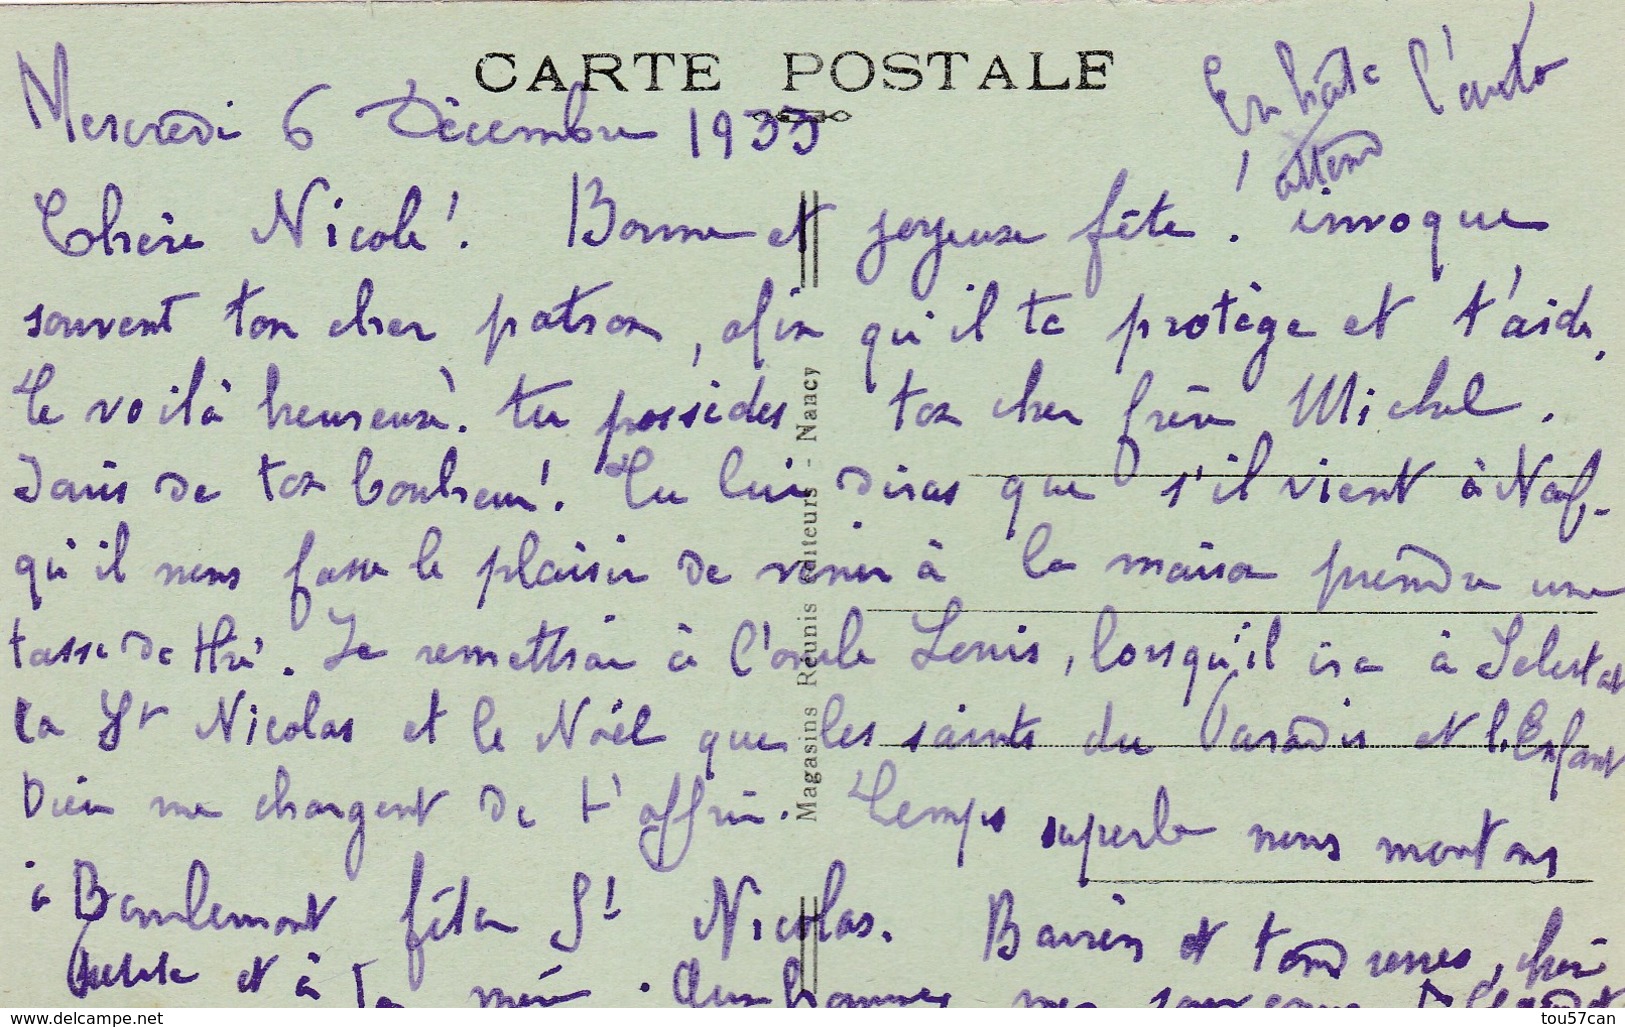 CARTE POSTALE
En hâte l'auto
attend
Mercredi 6 Décembre 1933
Chère Nicole! Bonne et joyeuse fête! invoque
souvent ton cher patron, afin qu'il te protège et t'aide.
Te voilà heureuse. tu possèdes ton cher frère Michel.
Jouis de ton bonheur! Tu lui diras que s'il vient à Naf-
qu'il nous fasse le plaisir de venir à la maison prendre une
tasse de thé. Je remettrai à l'oncle Louis, lorsqu'il ira à Selestat
la St Nicolas et le Noël que les saints du Paradis et l'Enfant
Dieu me chargent de t'offrir. Temps superbe nous montons
à Baudemont fêter St Nicolas. Baisers et tendresses, chère
petite et à ta mère. Aux hommes mes
Magasins Réunis éditeurs - Nancy
www.delcampe.net
tou57can